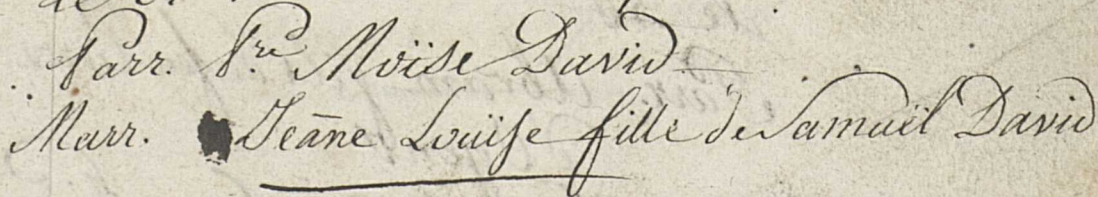 Parr. P.re Moïse David
Marr. Jeāne Louïse fille de Samuël David